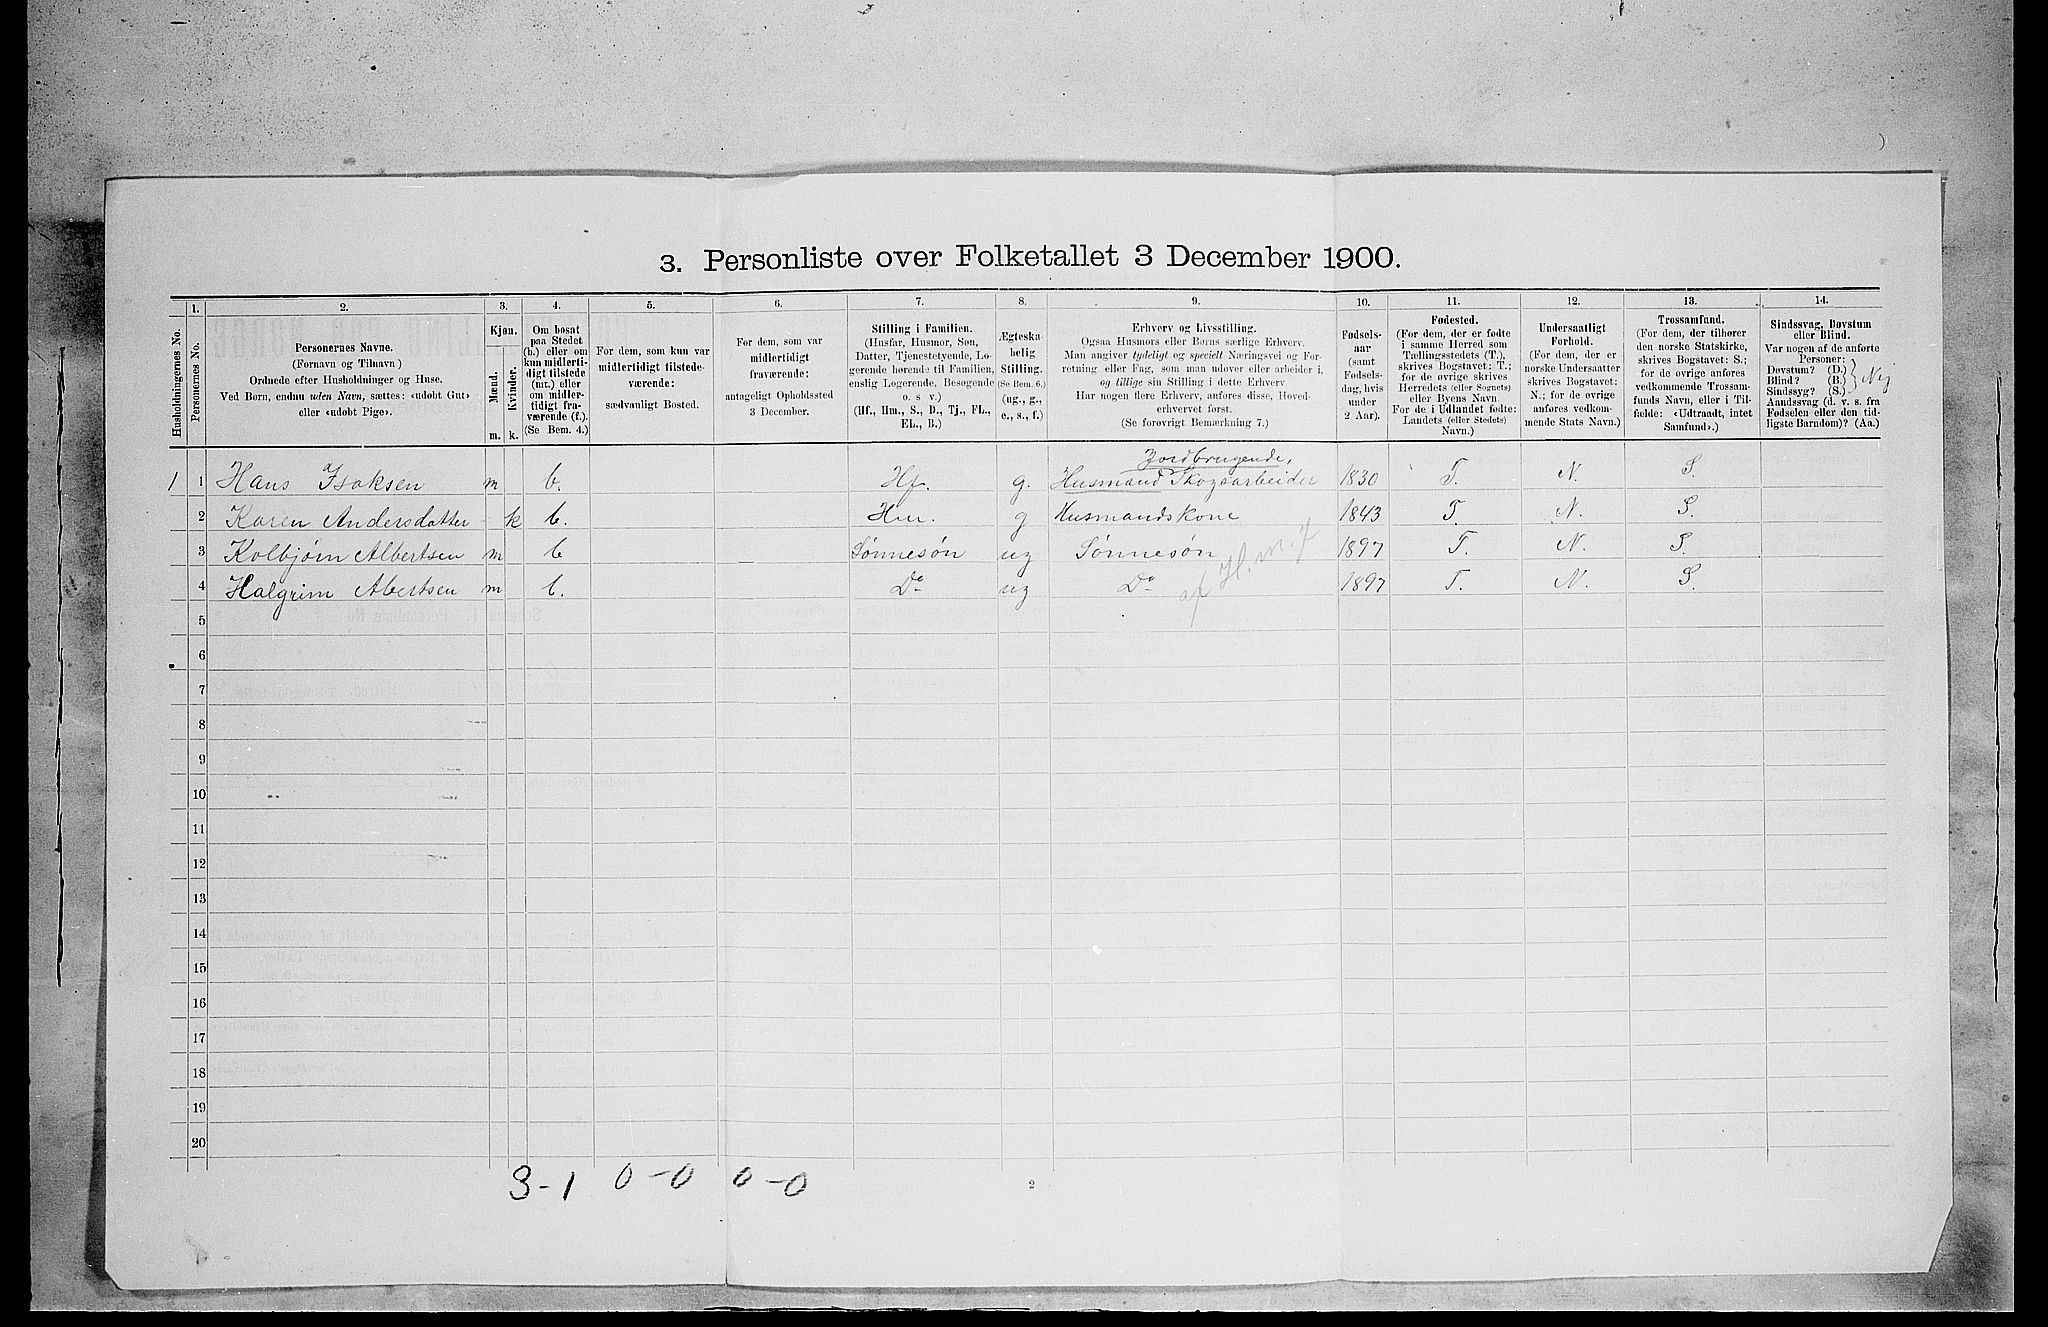 3. Personliste over Folketallet 3 December 1900.
Husholdningernes No.
1.
Personernes No.
2.
Personernes Navne.
(Fornavn og Tilnavn)
Ordnede efter Husholdninger og Huse.
Ved Børn, endnu uden Navn, sættes: «udøbt Gut»
eller «udøbt Pige».
3.
Kjøn.
Mænd.
Kvinder.
m. k.
4.
Om bosat
paa Stedet
(b.) eller om
kun midlerti-
digt tilstede
(mt.) eller
om midler-
tidigt fra-
værende (f.).
(Se Bem. 4.)
5.
For dem, som kun var
midlertidigt tilstede-
værende:
sædvanligt Bosted.
6.
For dem, som var
midlertidigt
fraværende:
antageligt Opholdssted
3 December.
7.
Stilling i Familien.
(Husfar, Husmor, Søn,
Datter, Tjenestetyende, Lo-
gerende hørende til Familien,
enslig Logerende, Besøgende
o. s. v.)
(Hf., Hm., S., D., Tj., FL.,
EL., B.)
8.
Ægteska-
belig
Stilling.
(Se Bem. 6.)
(ug., g.,
e., s., f.)
9.
Erhverv og Livsstilling.
Ogsaa Husmors eller Børns særlige Erhverv.
Man angiver tydeligt og specielt Næringsvei og For-
retning eller Fag, som man udøver eller arbeider i,
og tillige sin Stilling i dette Erhverv.
Har nogen flere Erhverv, anføres disse, Hoved-
erhvervet først.
(Se forøvrigt Bemærkning 7.)
10.
Fødsels-
aar
(samt
Fødsels-
dag, hvis
under
2 Aar).
11.
Fødested.
(For dem, der er fødte
i samme Herred som
Tællingsstedets (T.),
skrives Bogstavet: T.;
for de øvrige skrives
Herredets (eller Sognets)
eller Byens Navn.
For de i Udlandet fødte:
Landets (eller Stedets)
Navn.)
12.
Undersaatligt
Forhold.
(For dem, der er
norske Undersaatter
skrives Bogstavet:
N.; for de øvrige
anføres vedkom-
mende Stats Navn.)
13.
Trossamfund.
(For dem, der tilhører
den norske Statskirke,
skrives Bogstavet: S.;
for de øvrige anføres
vedkommende Trossam-
funds Navn, eller i Til-
fælde: «Udtraadt, intet
Samfund».)
14.
Sindssvag, Døvstum
eller Blind.
Var nogen af de anførte
Personer:
Døvstum? (D.)
Blind? (B.)
Sindssyg? (S.)
Aandssvag (d. v. s. fra
Fødselen eller den tid-
ligste Barndom)? (Aa.)
Nej
Jordbrugende,
1 1 Hans Isaksen m b. Hf. g. Husmand Skogsarbeider 1830 T. N. S.
2 Karen Andersdatter k b. Hm. g Husmandskone 1843 T. N. S.
3 Kolbjørn Albertsen m b Sønnesøn ug Sønnesøn 1897 T. N. S.
4 Halgrim Abertsen m b. Do ug Do af H. m. f 1897 T. N. S.
5
6
7
8
9
10
11
12
13
14
15
16
17
18
19
20
3-1 0-0 0-0
2